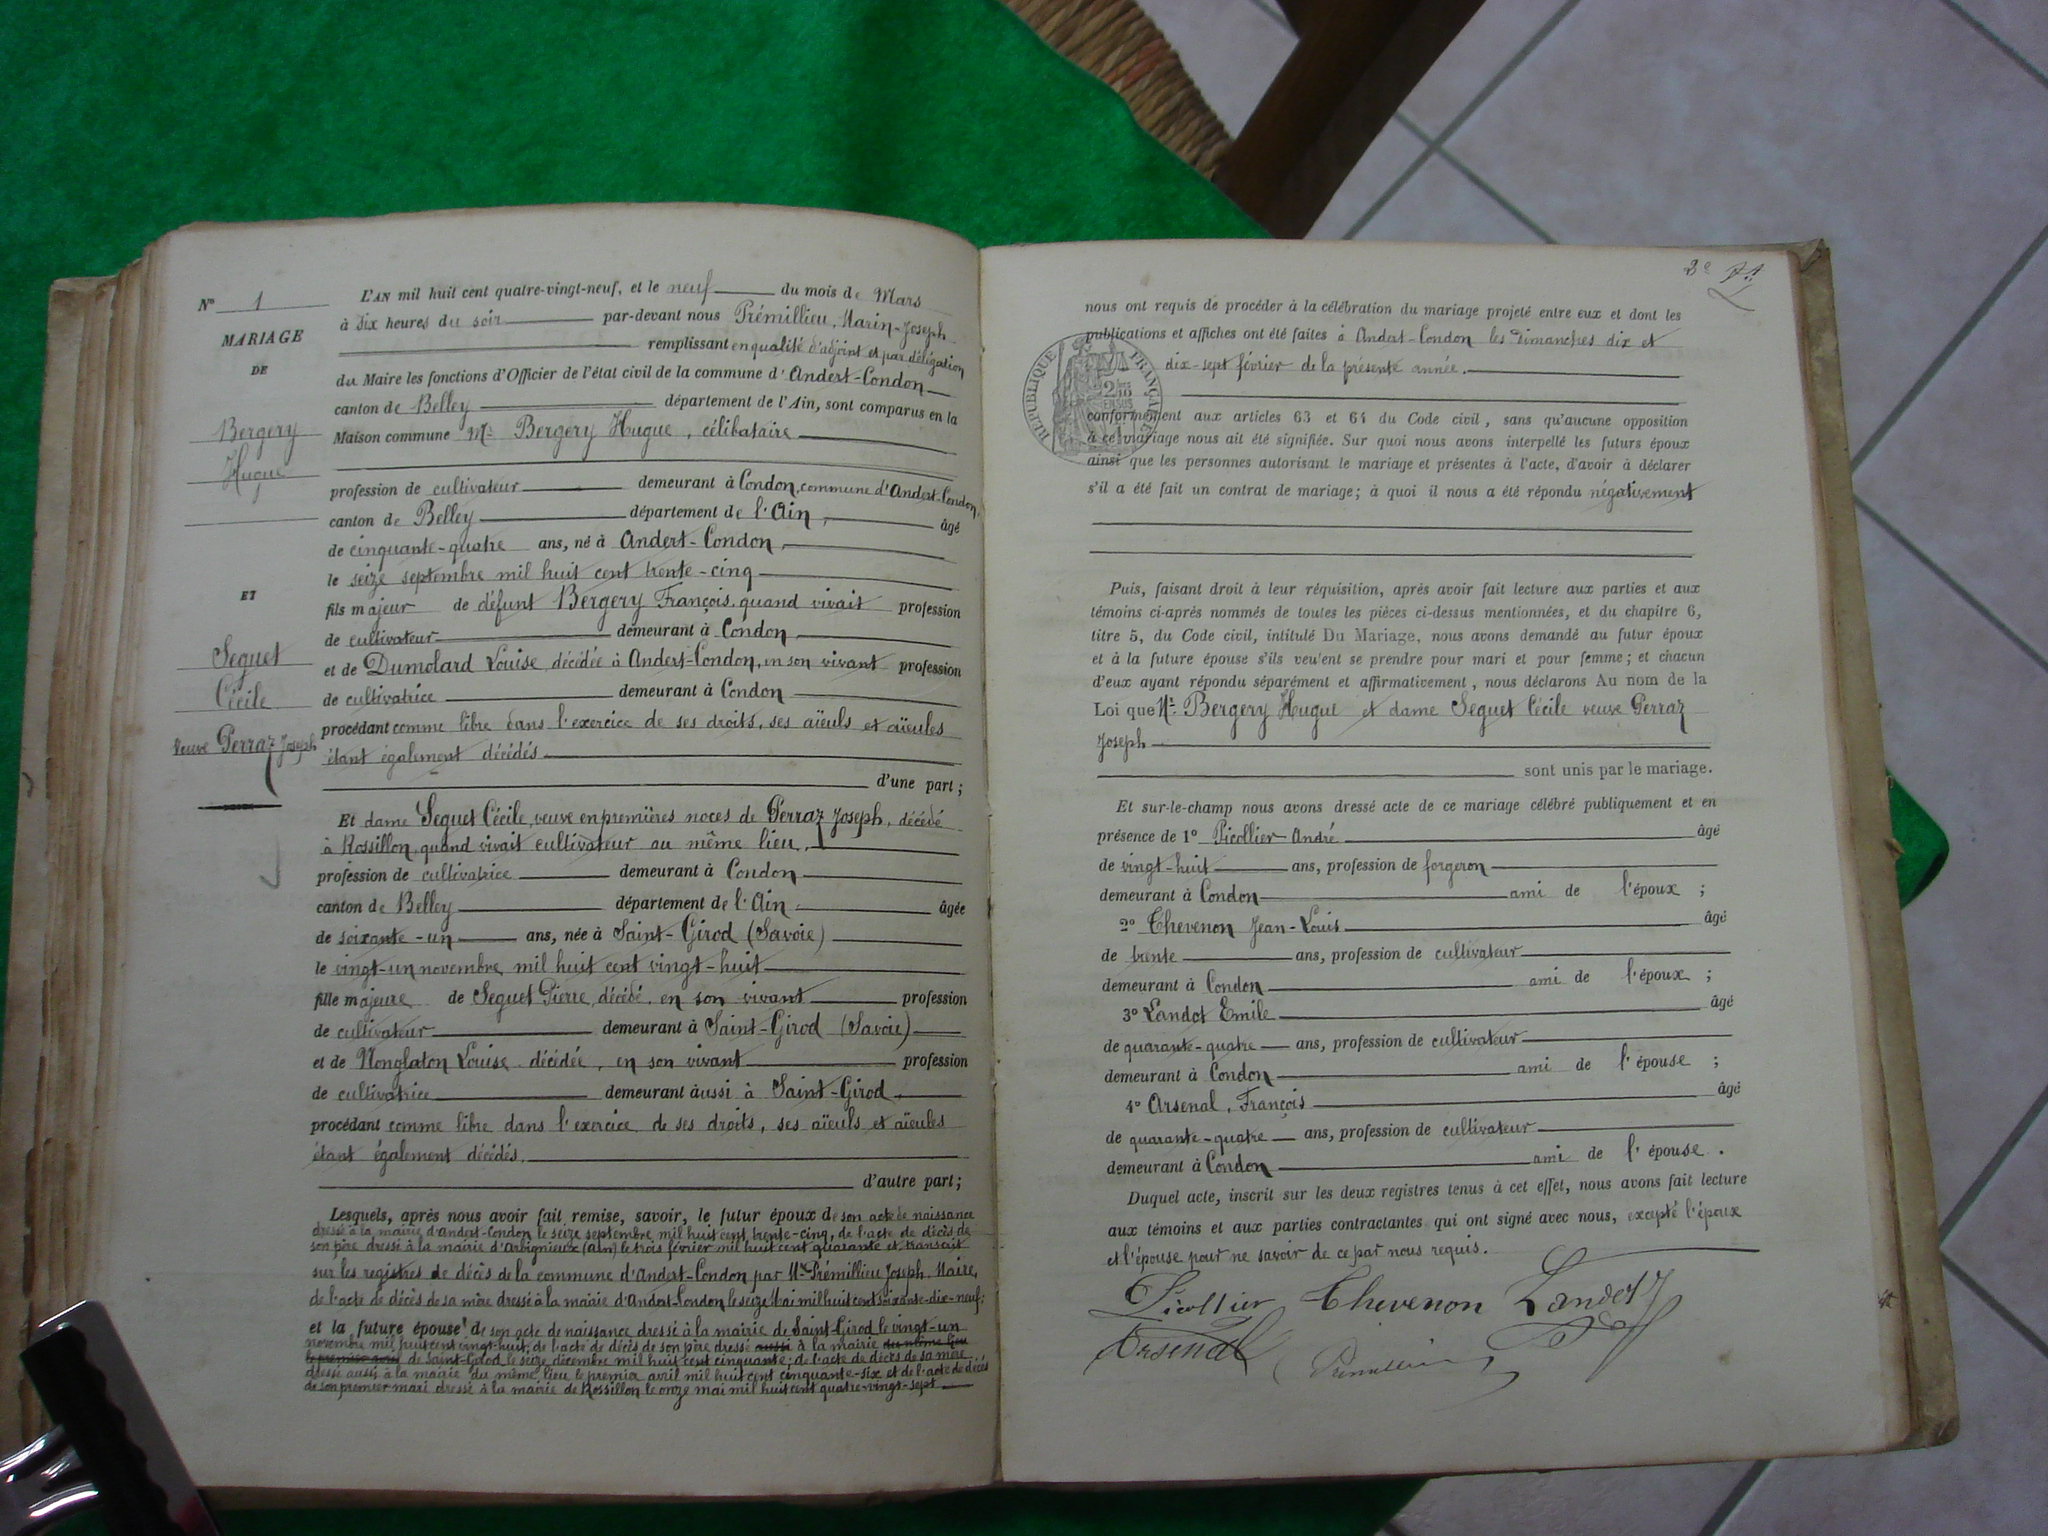 N° 1
MARIAGE
DE
Bergery
Hugue
ET
Seguet
Cécile
veuve Perraz Joseph
L'AN mil huit cent quatre-vingt-neuf, et le neuf du mois de Mars
à six heures du soir par-devant nous Prémillieu, Marin-Joseph
remplissant en qualité d'adjoint et par délégation
du Maire les fonctions d'Officier de l'état civil de la commune d'Andert-Condon
canton de Belley département de l'Ain, sont comparus en la
Maison commune Mr Bergery Hugue, célibataire
profession de cultivateur demeurant à Condon, commune d'Andert-Condon,
canton de Belley département de l'Ain, âgé
de cinquante-quatre ans, né à Andert-Condon,
le seize septembre mil huit cent trente-cinq
fils majeur de défunt Bergery François, quand vivait profession
de cultivateur demeurant à Condon
et de Dumolard Louise, décédée à Andert-Condon, en son vivant profession
de cultivatrice demeurant à Condon
procédant comme libre dans l'exercice de ses droits, ses aïeuls et aïeules
étant également décédés
d'une part;
Et dame Seguet Cécile, veuve en premières noces de Perraz Joseph, décédé
à Rossillon, quand vivait cultivateur au même lieu,
profession de cultivatrice demeurant à Condon
canton de Belley département de l'Ain âgée
de soixante-un ans, née à Saint-Girod (Savoie)
le vingt-un novembre mil huit cent vingt-huit
fille majeure de Seguet Pierre, décédé, en son vivant profession
de cultivateur demeurant à Saint-Girod (Savoie)
et de Monglaton Louise décédée, en son vivant profession
de cultivatrice demeurant aussi à Saint-Girod
procédant comme libre dans l'exercice de ses droits, ses aïeuls et aïeules
étant également décédés.
d'autre part;
Lesquels, après nous avoir fait remise, savoir, le futur époux de son acte de naissance
dressé à la mairie d'Andert-Condon le seize septembre mil huit cent trente-cinq, de l'acte de décès de
son père dressé à la mairie d'Arbignieux (Ain) le trois février mil huit cent quarante et transcrit
sur les registres de décès de la commune d'Andert-Condon par Mr Prémillieu Joseph, Maire,
de l'acte de décès de sa mère dressé à la mairie d'Andert-Condon le seize mai mil huit cent soixante-dix-neuf;
et la future épouse de son acte de naissance dressé à la mairie de Saint-Girod le vingt-un
novembre mil huit cent vingt-huit; de l'acte de décès de son père dressé aussi à la mairie du même lieu
de Saint-Girod le seize décembre mil huit cent cinquante; de l'acte de décès de sa mère
dressé aussi à la mairie du même lieu le premier avril mil huit cent cinquante-six et de l'acte de décès
de son premier mari dressé à la mairie de Rossillon le onze mai mil huit cent quatre-vingt-sept
2e
nous ont requis de procéder à la célébration du mariage projeté entre eux et dont les
publications et affiches ont été faites à Andert-Condon les dimanches dix et
dix-sept février de la présente année.
RÉPUBLIQUE FRANÇAISE
conformément aux articles 63 et 64 du Code civil, sans qu'aucune opposition
à ce mariage nous ait été signifiée. Sur quoi nous avons interpellé les futurs époux
ainsi que les personnes autorisant le mariage et présentes à l'acte, d'avoir à déclarer
s'il a été fait un contrat de mariage; à quoi il nous a été répondu négativement
Puis, faisant droit à leur réquisition, après avoir fait lecture aux parties et aux
témoins ci-après nommés de toutes les pièces ci-dessus mentionnées, et du chapitre 6,
titre 5, du Code civil, intitulé Du Mariage, nous avons demandé au futur époux
et à la future épouse s'ils veulent se prendre pour mari et pour femme; et chacun
d'eux ayant répondu séparément et affirmativement, nous déclarons Au nom de la
Loi que Mr Bergery Hugue et dame Seguet Cécile veuve Perraz
Joseph
sont unis par le mariage.
Et sur-le-champ nous avons dressé acte de ce mariage célébré publiquement et en
présence de 1° Picollier André âgé
de vingt-huit ans, profession de forgeron
demeurant à Condon ami de l'époux;
2° Thevenon Jean-Louis âgé
de trente ans, profession de cultivateur
demeurant à Condon ami de l'époux;
3° Landot Emile âgé
de quarante-quatre ans, profession de cultivateur
demeurant à Condon ami de l'épouse;
4° Arsenal, François âgé
de quarante-quatre ans, profession de cultivateur
demeurant à Condon ami de l'épouse.
Duquel acte, inscrit sur les deux registres tenus à cet effet, nous avons fait lecture
aux témoins et aux parties contractantes qui ont signé avec nous, excepté l'époux
et l'épouse pour ne savoir de ce par nous requis.
Picollier Thevenon Landot
Arsenal Prémillieu